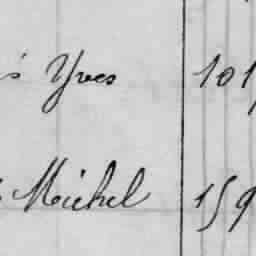 s Yves 101
Michel 159